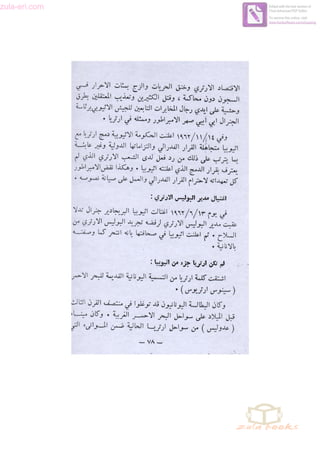 zula-eri.com
الاقتصاد الارتري وخنق الحريات والزج بمئات الاحرار في
السجون دون محاكمة ، وقتل الكثيرين وتعذيب المعتقلين بطرق
وحشية على ايدي رجال المخابرات التابعين للجيش الاثيوبي برئاسة
الجنرال ابي ابيي صهر الامبراطور وممثله في ارتريا •
وفي ١٩٦٢/١١/١٤ اعلنت الحكومة الاثيوبية دمج ارتريا مع
اثيوبيا متجاهلة القرار الفدرالي والتزاماتها الدولية وغير عابئة
بما يترتب على ذلك من رد فعل لدى الشعب الارتري الذي لم
يعترف بقرار الدمج الذي اعلنته اثيوبيا • وهكذا نقض الامبراطور
كل تعهداته لاحترام القرار الفدرالي والعمل على صيانة نصوصه •
اغتيال مدير البوليس الارتري :
في يوم ١٩٦٢/٦/١٣ اغتالت اثيوبيا البريجادير جنرال تدلا
عقبت مدير البوليس الارتري لرفضه تجريد البوليس الارتري من
السلاح • ثم اعلنت اثيوبيا في صحافتها بانه انتحر كما وصفته
بالانانية •
لم تكن ارتريا جزء من اثيوبيا :
اشتقت كلمة ارتريا من التسمية اليونانية القديمة للبحر الاحمر
( سينوس ارتريوس ) •
وكان البطالسة اليونانيون قد توغلوا في منتصف القرن الثالث
قبل الميلاد على سواحل البحر الاحمر الغربية • وكان ميناء
( عدوليس ) من سواحل ارتريا الحالية ضمن الموانىء التي
— ٧٨ —
zula books